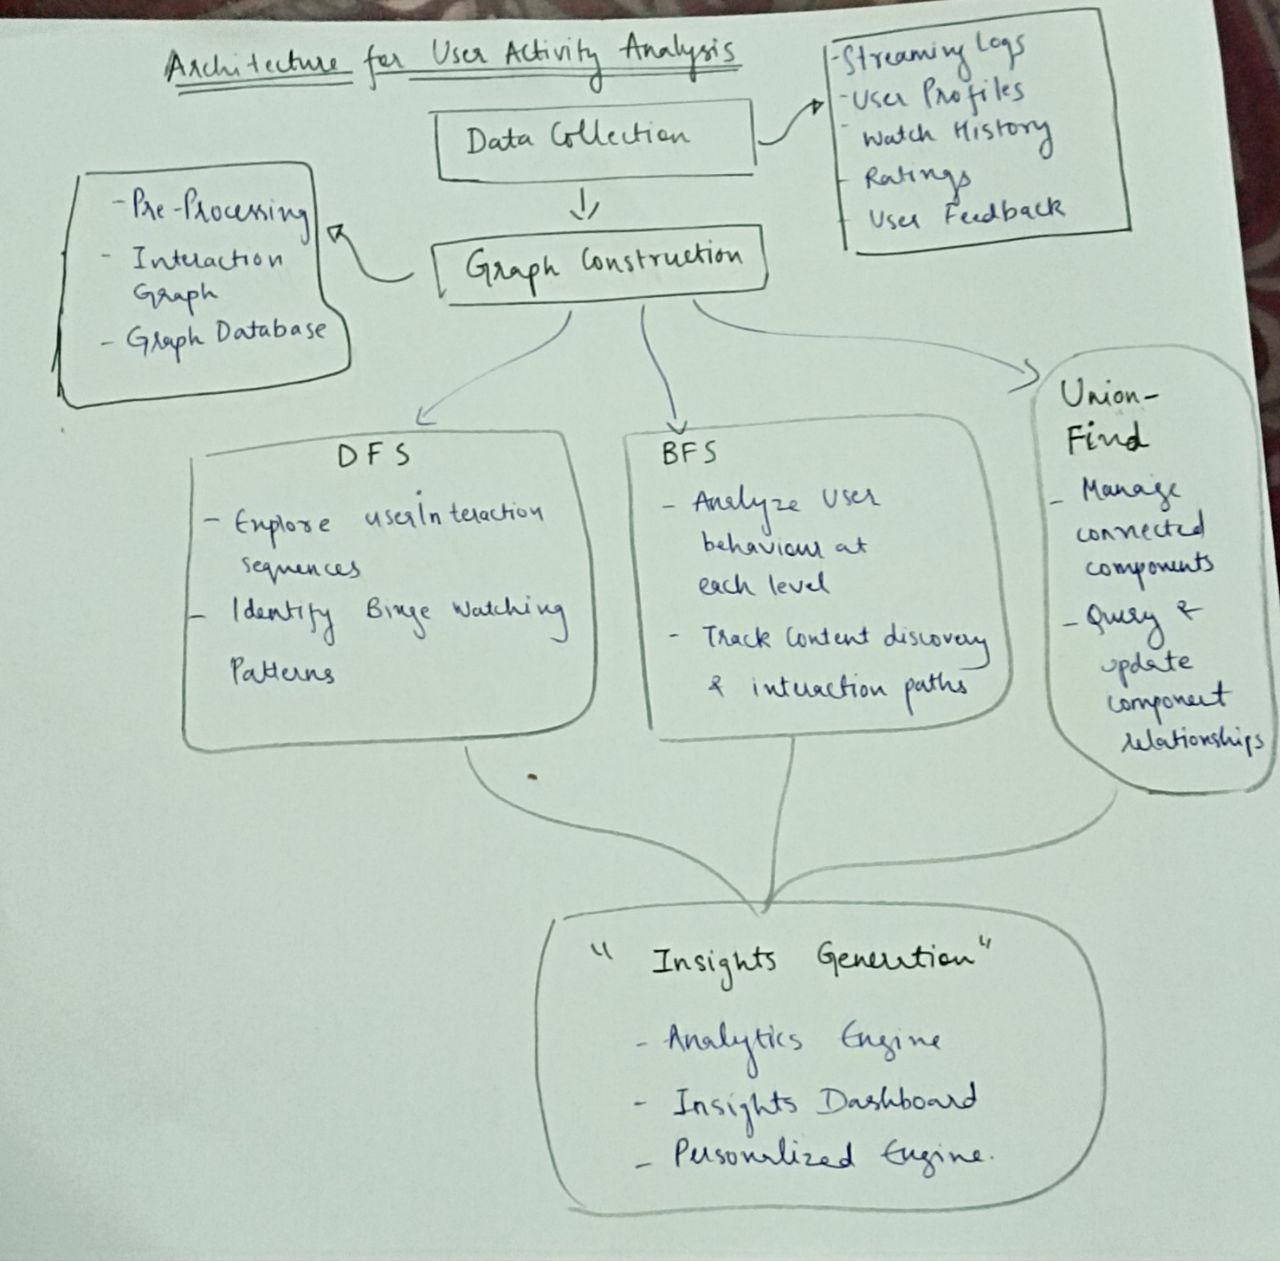 Architecture for User Activity Analysis
Data Collection
- Streaming Logs
- User Profiles
- Watch History
- Ratings
- User Feedback
Graph Construction
- Pre-Processing
- Interaction
Graph
- Graph Database
DFS
- Explore user Interaction
sequences
- Identify Binge Watching
Patterns
BFS
- Analyze User
behaviour at
each level
- Track Content discovery
& interaction paths
Union-
Find
- Manage
connected
components
- Query &
update
component
relationships
"Insights Generation"
- Analytics Engine
- Insights Dashboard
- Personalized Engine.